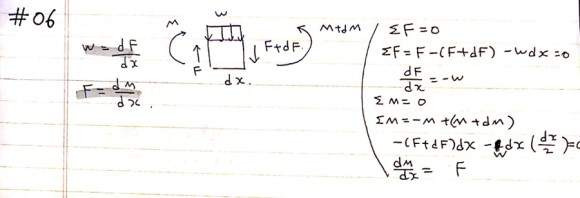 #06
w = dF/dx
F = dM/dx.
w
M
F
F+dF
M+dM
dx.
ΣF=0
ΣF=F-(F+dF)-wdx=0
dF/dx = -w
ΣM=0
ΣM=-M+(M+dM)
-(F+dF)dx - wdx(dx/2)=0
dM/dx = F